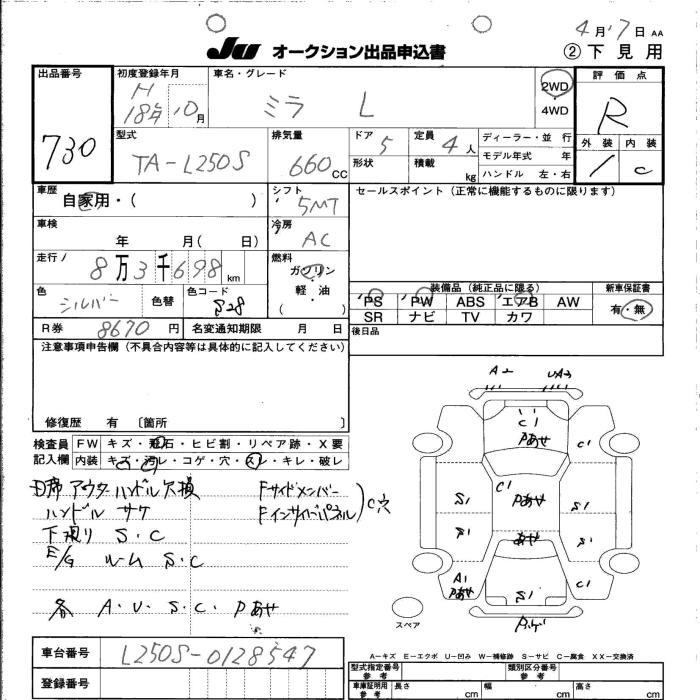 4月17日 AA
JU オークション出品申込書
② 下見用
出品番号
730
初度登録年月
H 18年 10月
車名・グレード
ミラ L
2WD
4WD
評価点
R
外装 内装
1 C
型式
TA-L250S
排気量
660 CC
ドア 5
形状
定員 4人
積載 kg
ディーラー・並行
モデル年式 年
ハンドル 左・右
車歴
自家用・( )
シフト
5MT
セールスポイント (正常に機能するものに限ります)
車検
年 月( 日)
冷房
AC
走行
8万3千698 km
燃料
ガソリン
・
軽・油
( )
色
シルバー
色替
色コード
S28
装備品 (純正品に限る)
PS PW ABS エアB AW
SR ナビ TV カワ
新車保証書
有・無
R券 8670 円
名変通知期限 月 日
後日品
注意事項申告欄 (不具合内容等は具体的に記入してください)
修復歴 有 〔箇所 〕
検査員
記入欄
FW キズ・飛石・ヒビ割・リペア跡・X要
内装 キズ・汚レ・コゲ・穴・スレ・キレ・破レ
アウターハンドル欠損
ハンドル サケ
下廻り S・C
E/G ルーム S・C
各 A・U・S・C・Pあせ
Fサイドメンバー
Fインサイドパネル
C穴
A2
UA3
C1
Pあせ
C1
C1
Pあせ
S1
S1
S1
S1
あせ
A1
Pあせ
S1
C1
スペア
A-キズ E-エクボ U-凹み W-補修跡 S-サビ C-腐食 XX-交換済
車台番号
L250S-0128547
登録番号
型式指定番号
参考
類別区分番号
参考
車庫証明用
参考
長さ cm
幅 cm
高さ cm